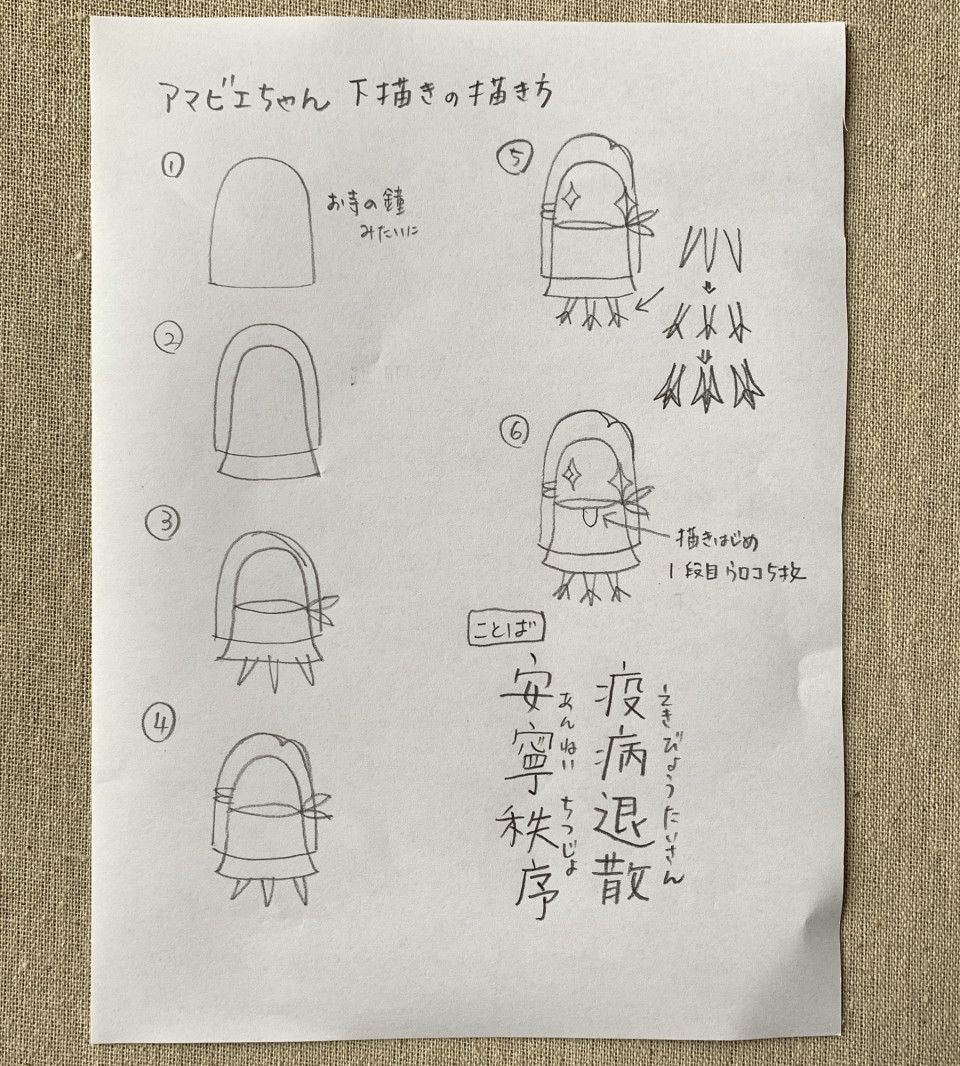 アマビエちゃん 下描きの描き方
①
お寺の鐘
みたいに
②
③
④
⑤
⑥
描きはじめ
1段目ウロコ5枚
ことば
疫病退散
えきびょうたいさん
安寧秩序
あんねい ちつじょ